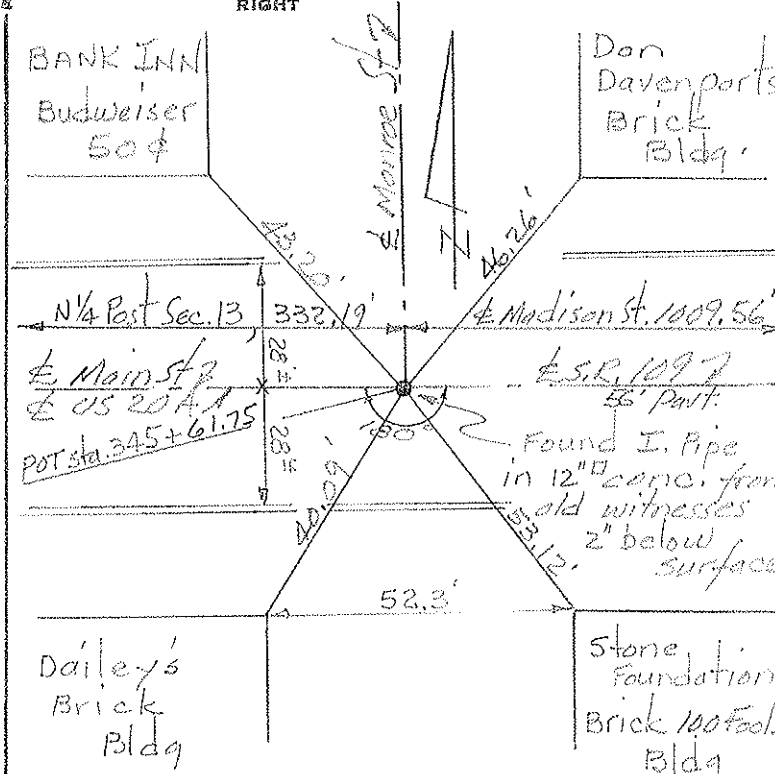 RIGHT
BANK INN
Budweiser
50¢
℄ Monroe St
N
Don
Davenports
Brick
Bldg.
43.20'
46.26'
N¼ Post Sec. 13, 332.19'
℄ Madison St. 1009.56'
28'±
℄ Main St
℄ US 20A
POT sta. 345+61.75
℄ S.R. 109
56' Pav't.
180°
28'±
Found I. Pipe
in 12"□ conc. from
old witnesses
2" below
surface
40.09'
53.12'
52.3'
Dailey's
Brick
Bldg
Stone
Foundation
Brick 100 Fool.
Bldg